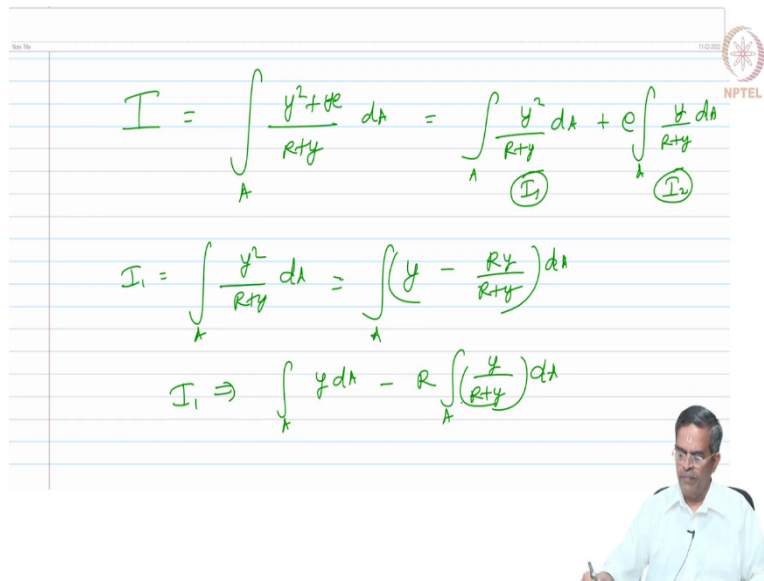 Note Title 11-02-2022
NPTEL
I = ∫_A (y² + ye)/(R+y) dA = ∫_A y²/(R+y) dA + e∫_A y/(R+y) dA
I₁ I₂
I₁ = ∫_A y²/(R+y) dA = ∫_A (y − Ry/(R+y)) dA
I₁ ⇒ ∫_A y dA − R ∫_A (y/(R+y)) dA